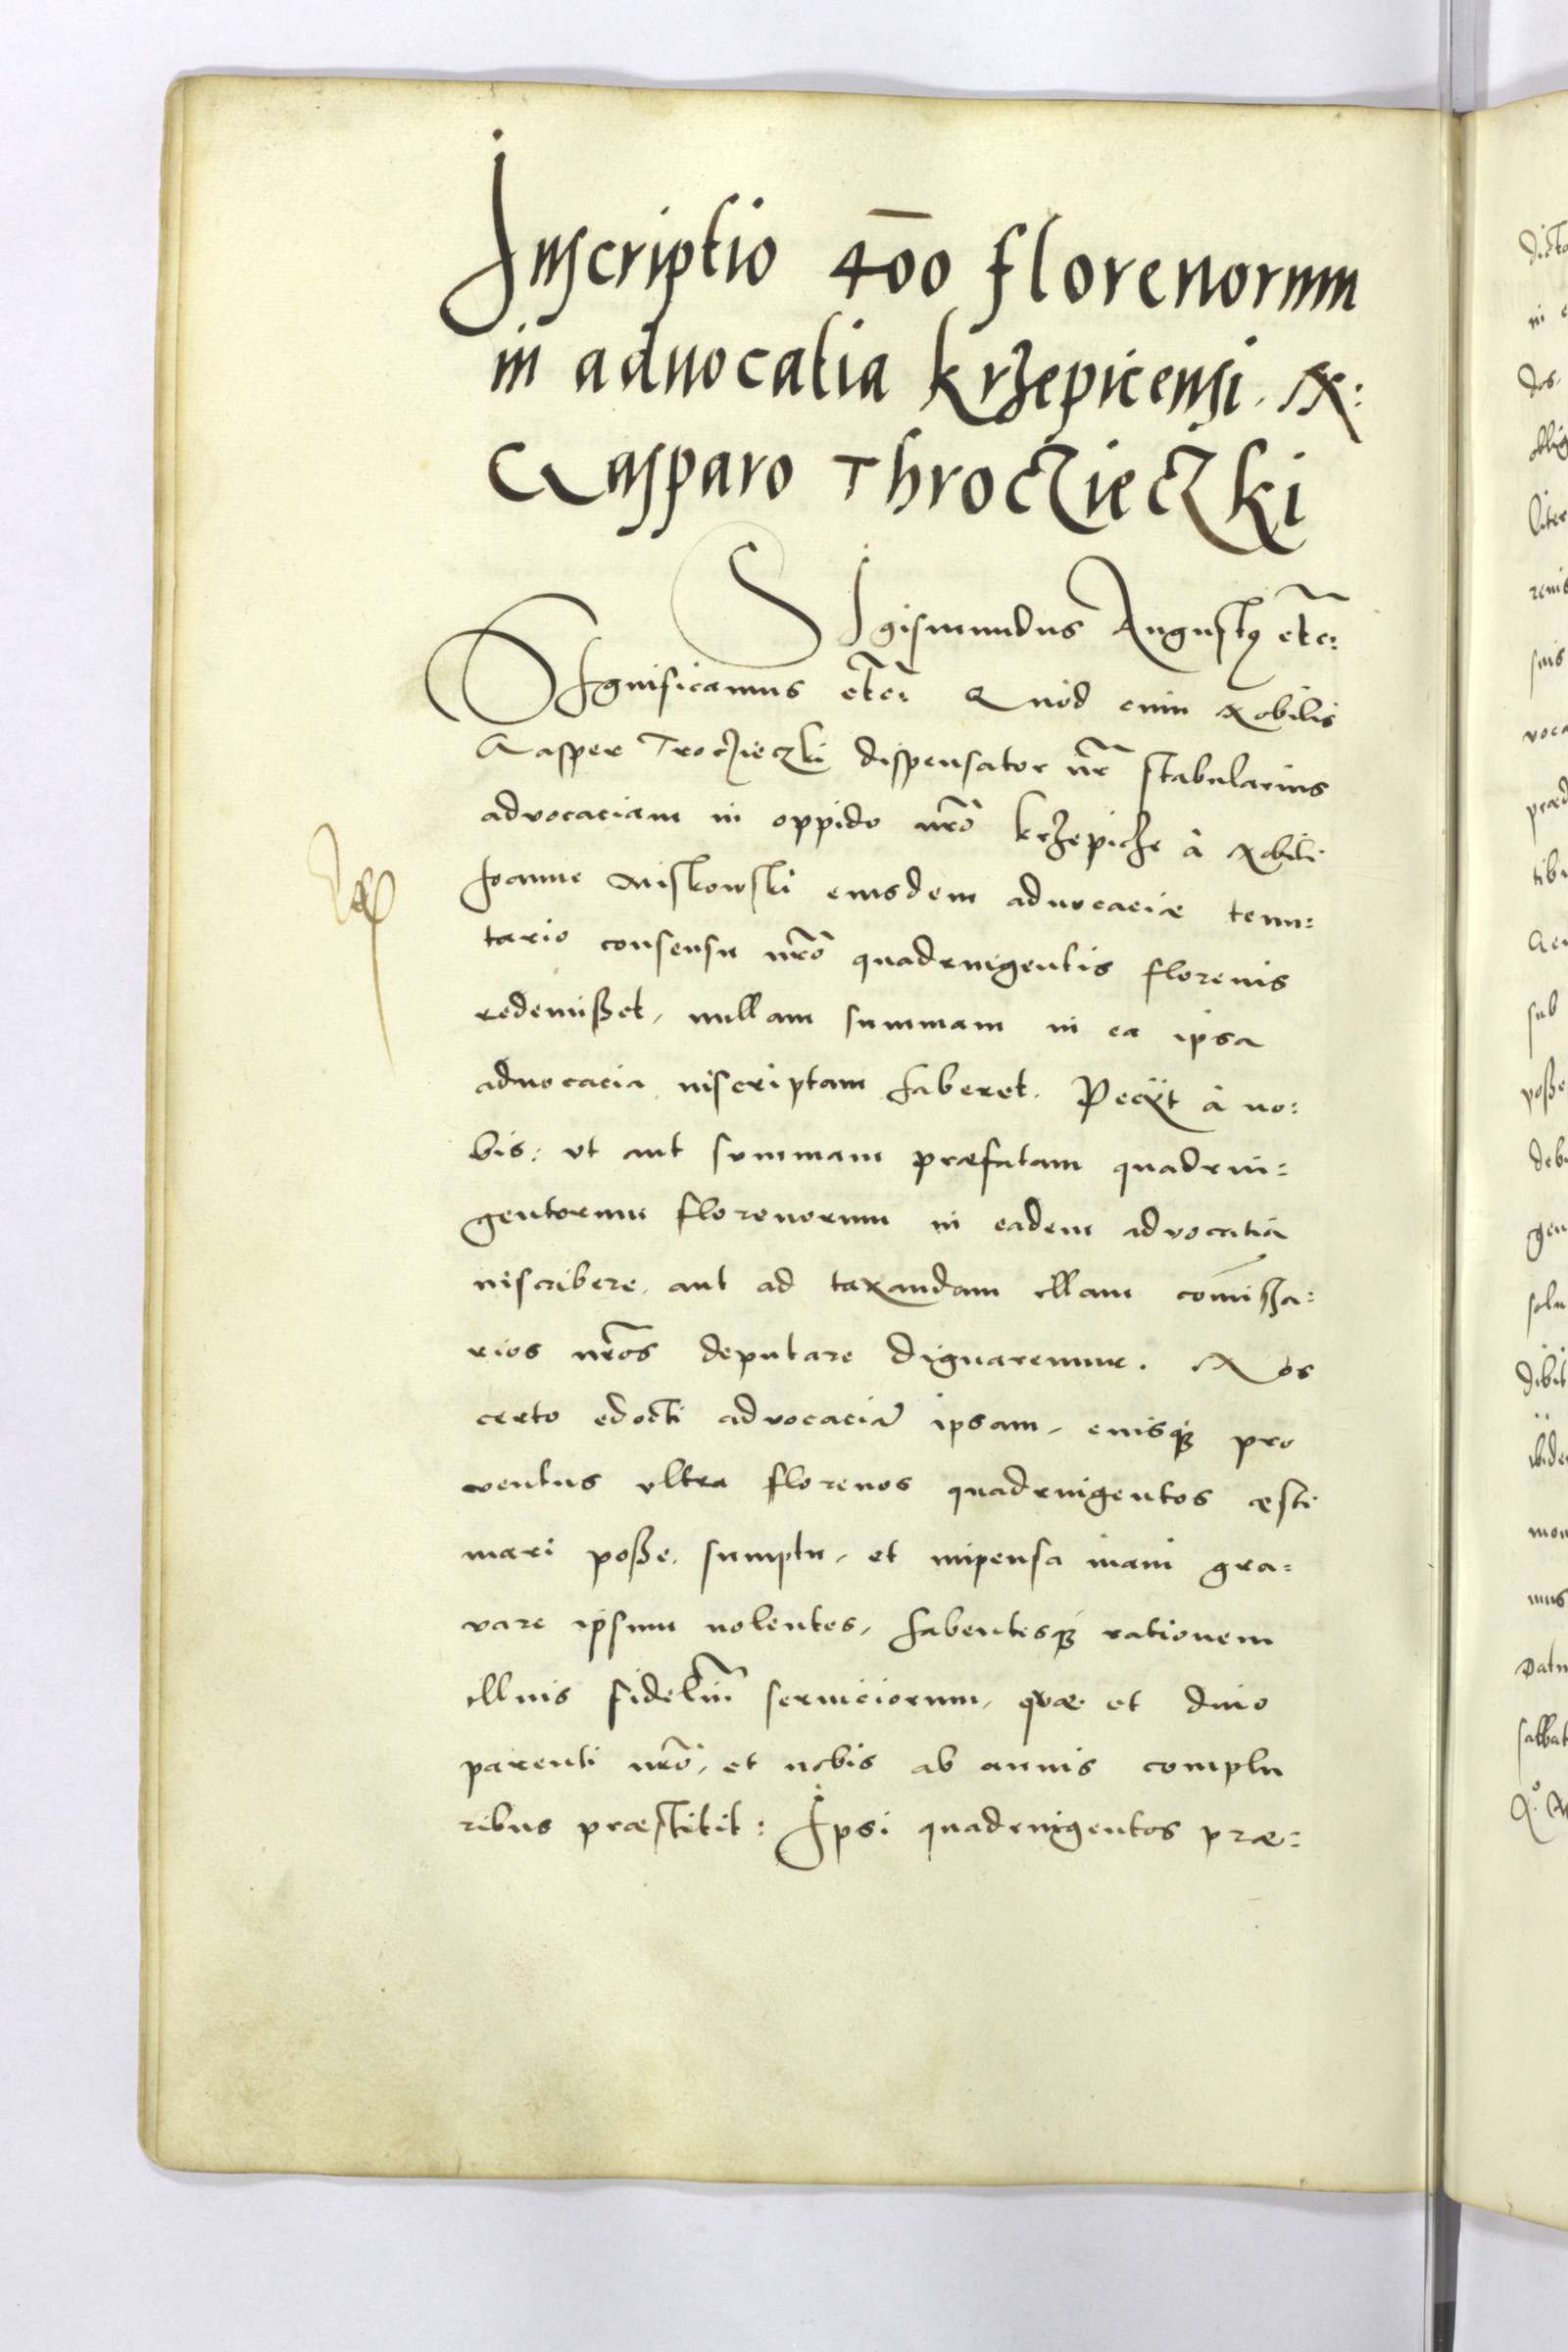 Inscriptio 400 florenorum
in aduocatia krzepicensi. N:
Casparo Throczieczki
SIgismundus Augustꝯ etc:
SIgnificamus etc: Quod cum Nobilis
Casper Troczieczki dispensator nr̃ stabularius
advocaciam in oppido nr̃o krzepicze à Nobili
Joanne Miskowski eiusdem aduocaciæ tenu:
tario consensu nr̃o quadringentis florenis
redemißet, nullam summam in ea ipsa
aduocacia inscriptam haberet. Pecÿt à no:
bis: vt aut summam præfatam quadrin:
gentorum florenorum in eadem advocatia
inscribere, aut ad taxandam illam com̃ißa:
rios nr̃os deputare dignaremur. Nos
certo edocti advocaciã ipsam, eiusqꝫ pro
ventus vltra florenos quadringentos æsti
mari poße, sumptu, et impensa inani gra:
vare ipsum nolentes, habentesqꝫ rationem
illius fideliũ seruiciorum, quæ et diuo
parenti nr̃o, et nobis ab annis complu
ribus præstitit: Ipsi quadringentos præ: